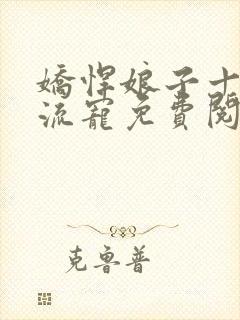 嬌悍娘子十
流寵免費閱
克魯普